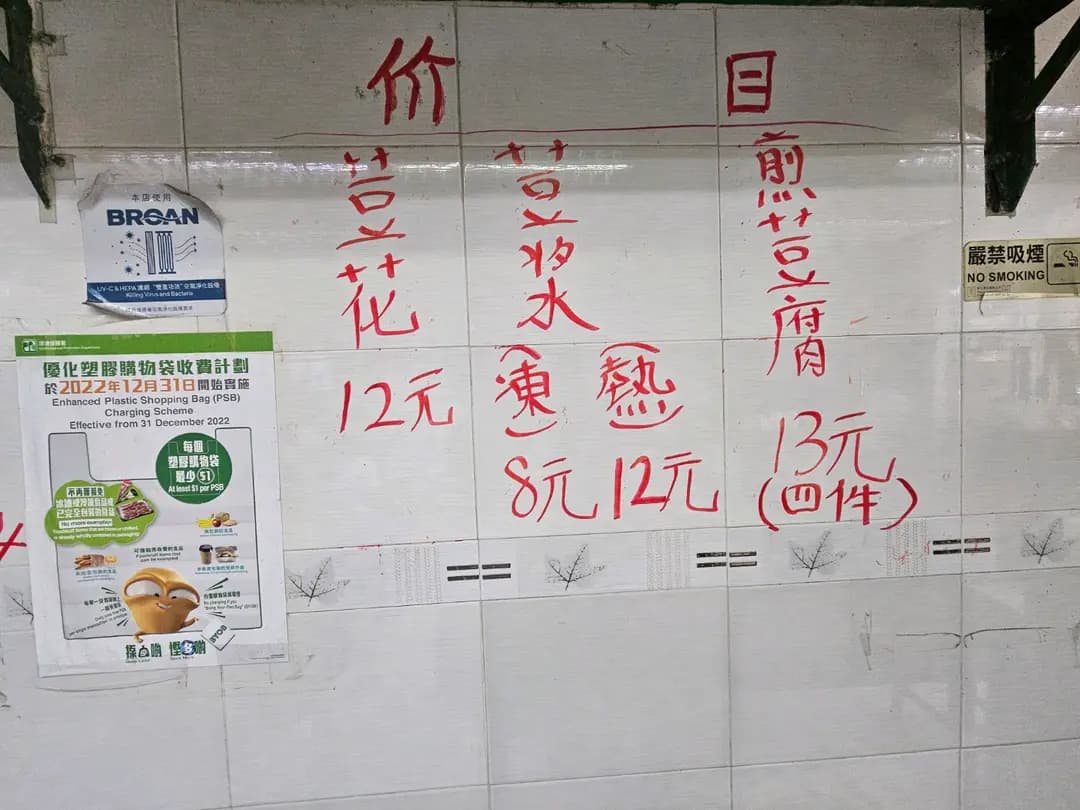 价目
荳花
12元
荳浆
(凍)
8元
(熱)
12元
煎荳腐
13元
(四件)
本店使用
BROAN
UV-C & HEPA濾網 "雙重功效" 空氣淨化設備
Killing Virus and Bacteria
優化塑膠購物袋收費計劃
於2022年12月31日開始實施
Enhanced Plastic Shopping Bag (PSB)
Charging Scheme
Effective from 31 December 2022
每個
塑膠購物袋
最少$1
At least $1 per PSB
不再豁免
No more exemption
可獲豁免收費的食品
Foodstuff items that
can be exempted
BYOB
嚴禁吸煙
NO SMOKING